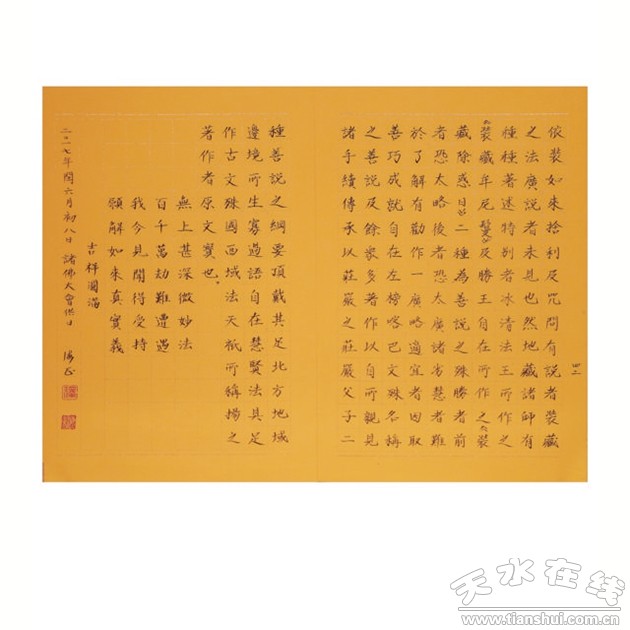 依裝如來捨利及咒間有說者裝藏
之法廣說者未見也然地藏諸師有
種種著述特別者冰清法王所作之
裝藏牟尼鬘及勝王自在所作之裝
藏除惑日二種為善說之殊勝者前
者恐太略後者恐太廣諸劣慧者難
於了解有勸作一廣略適宜者因取
善巧成就自在左榜喀巴文殊名稱
之善說及餘眾多著作以自所親見
諸手續傳承以莊嚴之莊嚴父子二
四二
種善說之綱要頂戴其足北方地域
邊境所生寡過語自在慧賢法具足
作古文殊國西域法天祇所稱揚之
著作者原文實也。
無上甚深微妙法
百千萬劫難遭遇
我今見聞得受持
願解如來真實義
吉祥圓滿
二〇一七年閏六月初八日 諸佛大會供日
天水在线
www.tianshui.com.cn